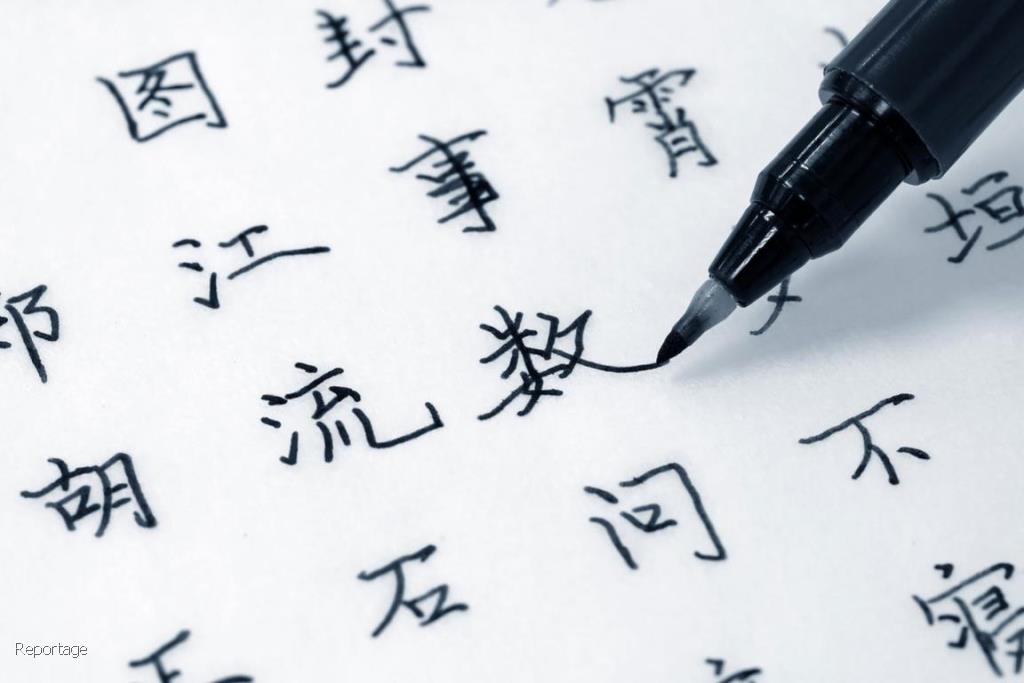 垣
霄不寝
封事数问
图江流石
胡
Reportage